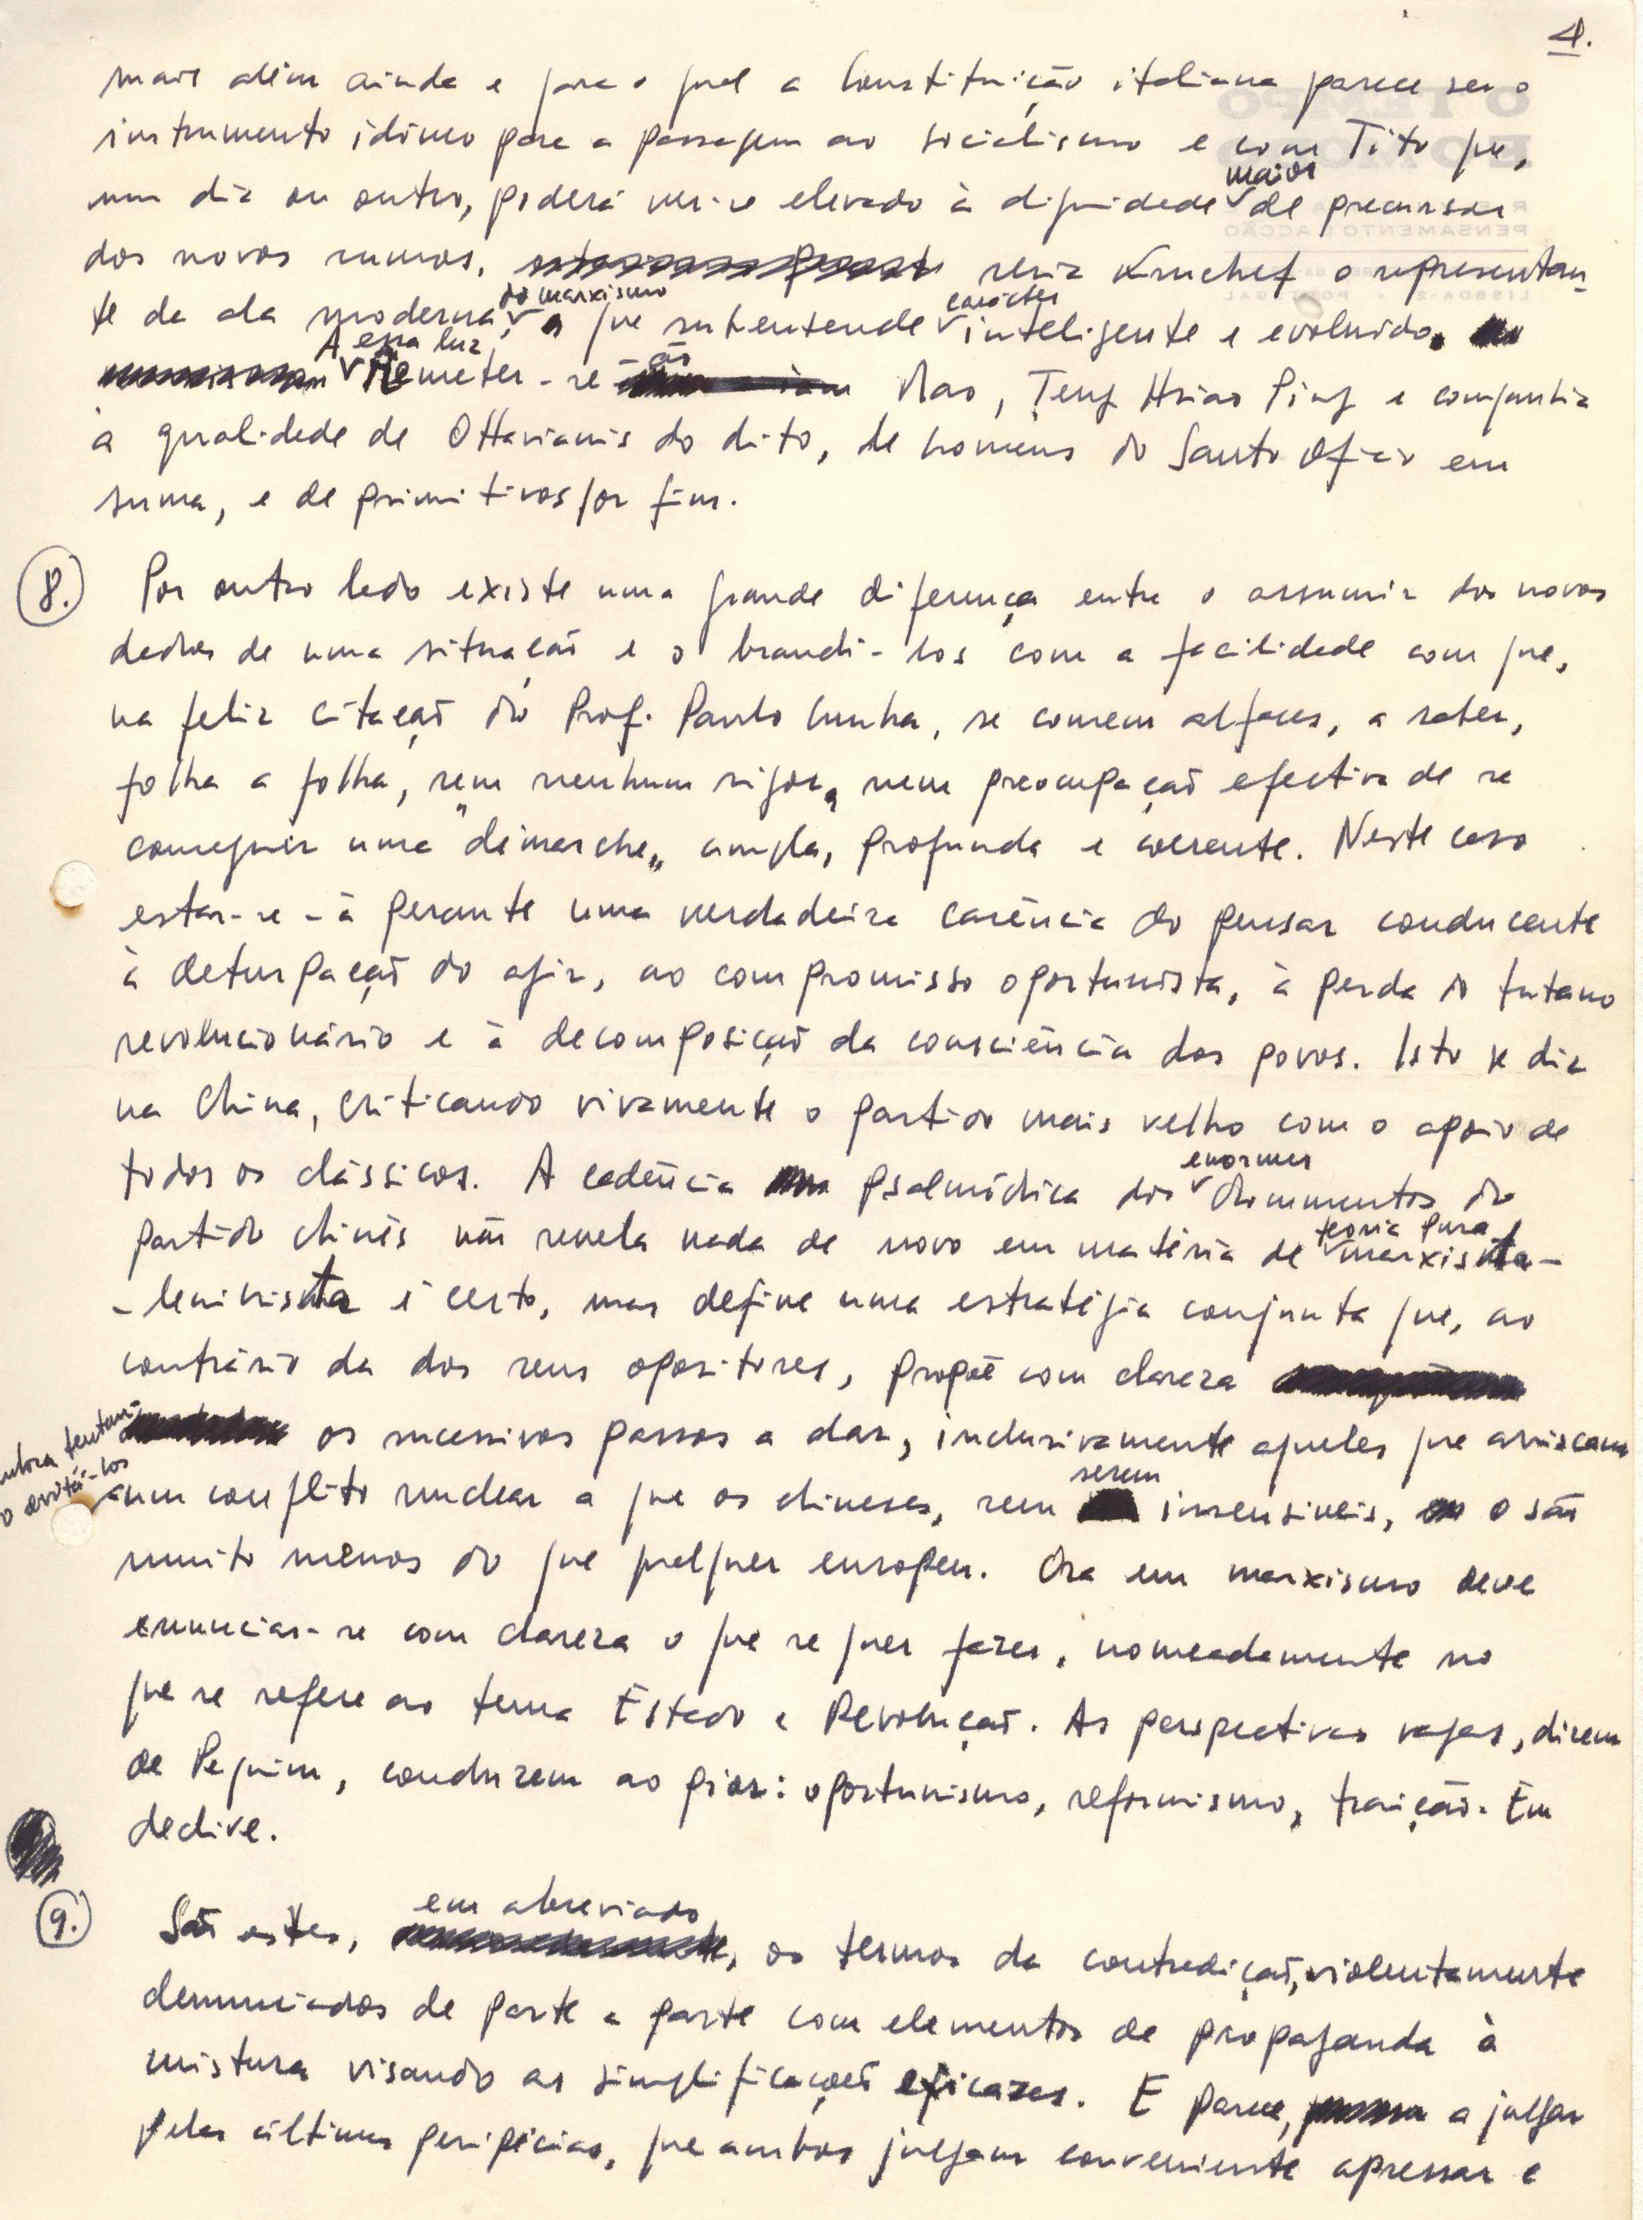 4.
mais além ainda e para o qual a Constituição italiana parece ser o
instrumento idóneo para a passagem ao socialismo e com Tito que,
maior
um dia ou outro, poderá ver-se elevado à dignidade de precursor
dos novos rumos, seria Kruchef o representan-
do marxismo carácter
te da ala moderna, o que subentende inteligente e evoluido.
A essa luz, -ão
Remeter-se Mao, Teng Hsiao Ping e companhia
à qualidade de Ottavianis do dito, de homens do Santo Ofício em
suma, e de primitivos por fim.
8. Por outro lado existe uma grande diferença entre o assumir dos novos
dados de uma situação e o brandi-los com a facilidade com que,
na feliz citação do Prof. Paulo Cunha, se comem alfaces, a saber,
folha a folha, sem nenhum rigor, nem preocupação efectiva de se
conseguir uma "démarche" ampla, profunda e coerente. Neste caso
estar-se-à perante uma verdadeira carência do pensar conducente
à deturpação do agir, ao compromisso oportunista, à perda do tutano
revolucionário e à decomposição da consciência dos povos. Isto se diz
na China, criticando vivamente o partido mais velho com o apoio de
todos os clássicos. A cadência psalmódica dos documentos do
enormes
partido chinês não revela nada de novo em matéria de marxista-
teoria pura
-leninista é certo, mas define uma estratégia conjunta que, ao
contrário da dos seus opositores, propõe com clareza
os sucessivos passos a dar, inclusivamente aqueles que arriscam
embora tentan-
do evitá-los
um conflito nuclear a que os chineses, sem serem insensíveis, o são
muito menos do que qualquer europeu. Ora em marxismo deve
enunciar-se com clareza o que se quer fazer, nomeadamente no
que se refere ao tema Estado e Revolução. As perspectivas vagas, dizem
de Pequim, conduzem ao pior: oportunismo, reformismo, traição. Em
declive.
9. São estes, em abreviado, os termos da contradição, violentamente
denunciados de parte a parte com elementos de propaganda à
mistura visando as simplificações eficazes. E parece, a julgar
pelas últimas peripécias, que ambos julgam conveniente apressar e